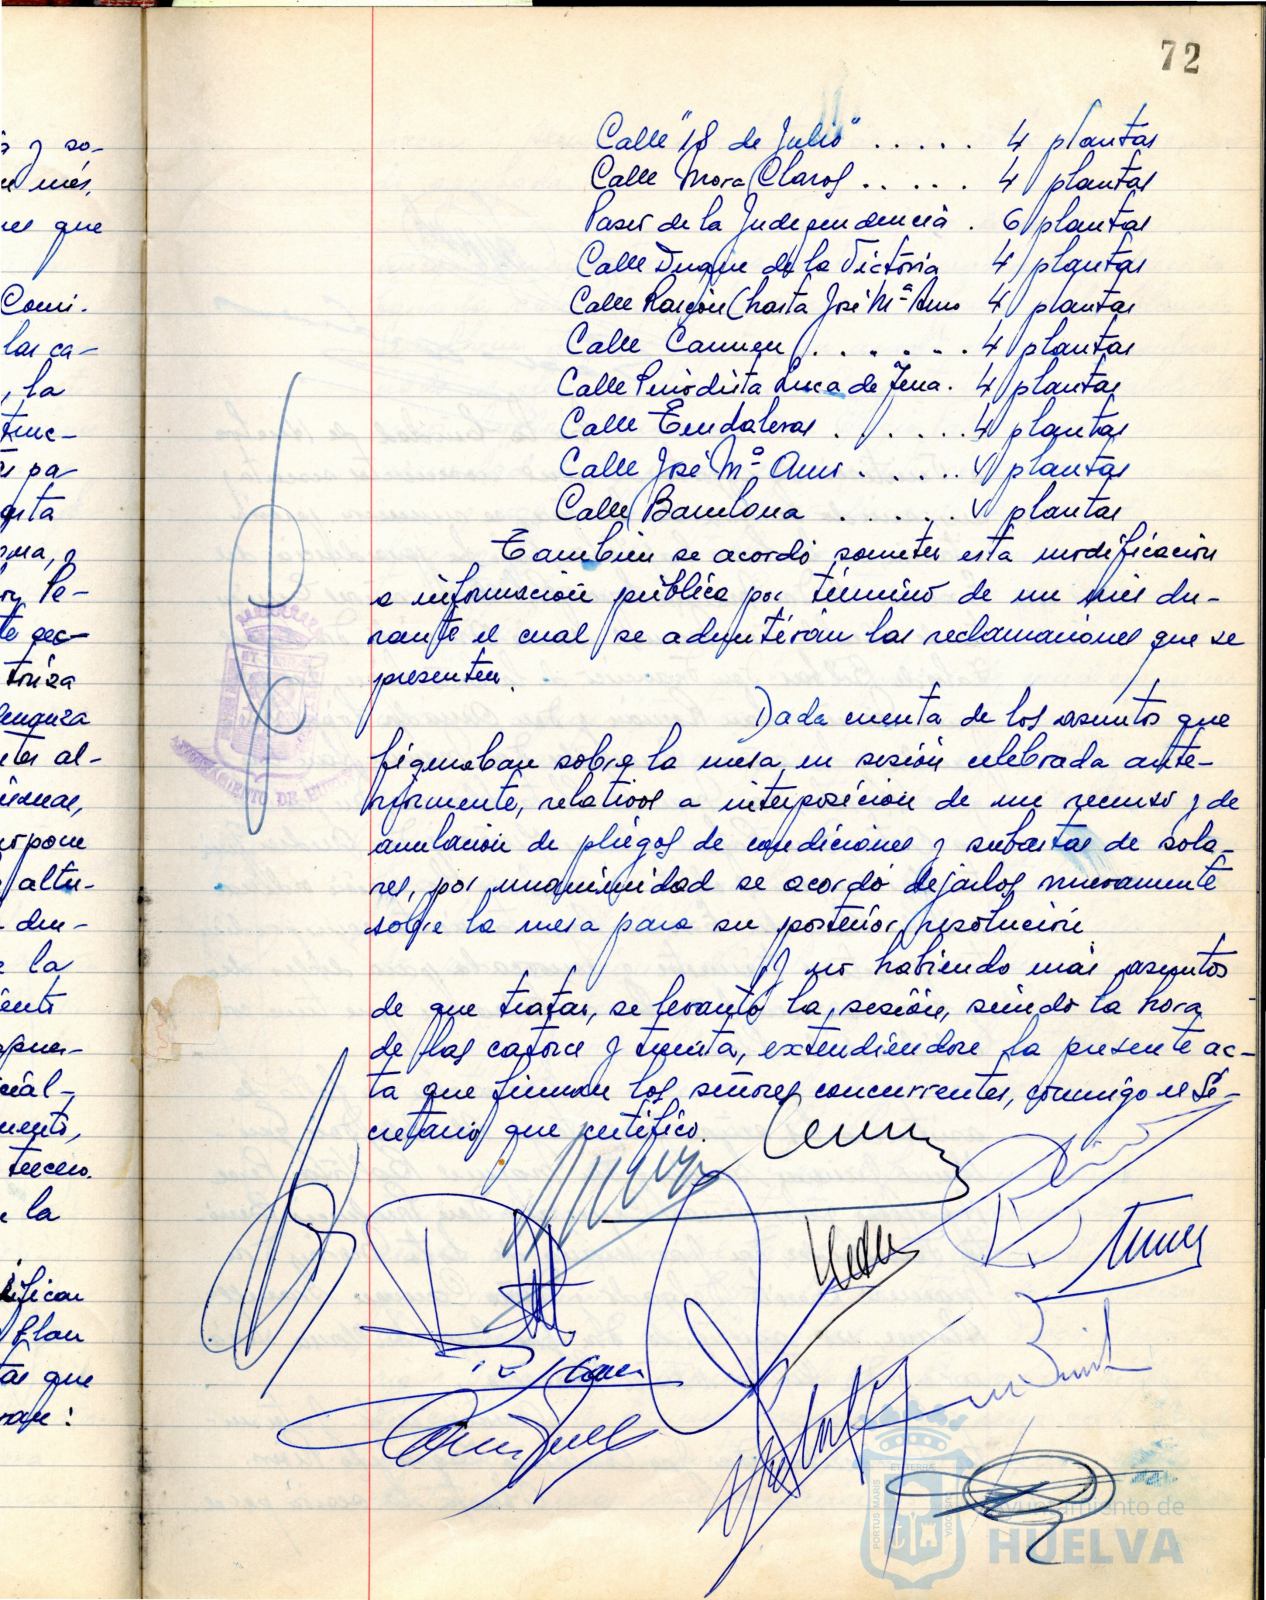 72
Calle "18 de Julio" ..... 4 plantas
Calle Mora Claros ..... 4 plantas
Paseo de la Independencia . 6 plantas
Calle Duque de la Victoria 4 plantas
Calle Rascón (hasta José Mª Amo 4 plantas
Calle Carmen ....... 4 plantas
Calle Periodista Luca de Tena. 4 plantas
Calle Tendaleras ..... 4 plantas
Calle José Mª Amo ..... 4 plantas
Calle Barcelona ..... 4 plantas
También se acordó someter esta modificación
a información pública por término de un mes du-
rante el cual se admitirán las reclamaciones que se
presenten.
Dada cuenta de los asuntos que
figuraban sobre la mesa en sesión celebrada ante-
riormente, relativos a interposición de un recurso y de
anulación de pliegos de condiciones y subastas de sola-
res, por unanimidad se acordó dejarlos nuevamente
sobre la mesa para su posterior resolución.
Y no habiendo más asuntos
de que tratar, se levantó la sesión, siendo la hora
de las catorce y treinta, extendiéndose la presente ac-
ta que firman los señores concurrentes, conmigo el Se-
cretario que certifico.
s y so-
que
Comi-
las ca-
, la
pa-
Pe-
al-
altu-
la
cial-
tercero.
la
Plan
que
AYUNTAMIENTO DE HUELVA
PORTUS MARIS
ET TERRE
CUSTODIA
Ayuntamiento de
HUELVA